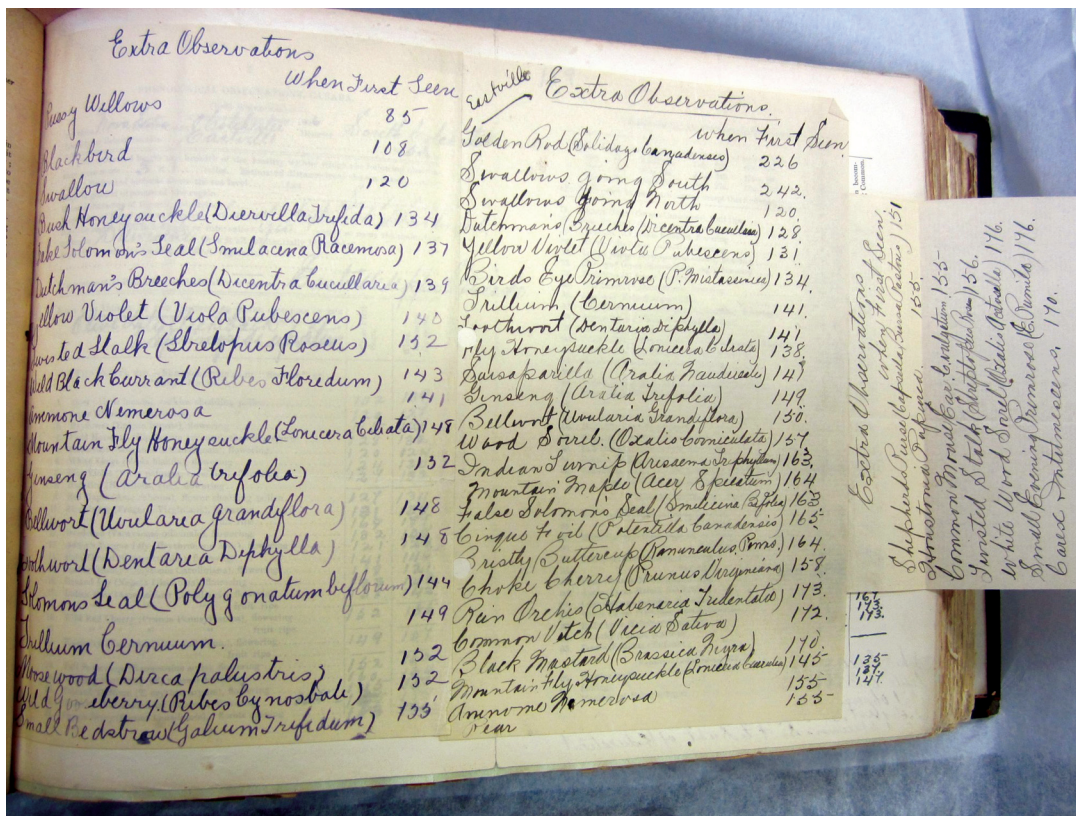 Extra Observations
When First Seen
Pussy Willows 85
Blackbird 108
Swallow 120
Bush Honeysuckle (Diervilla Trifida) 134
Solomon's Seal (Smilacina Racemosa) 137
Dutchman's Breeches (Dicentra Cucullarea) 139
Yellow Violet (Viola Pubescens) 140
Twisted Stalk (Stretopus Roseus) 152
Wild Black Currant (Ribes Floredum) 143
Ammone Nemerosa 141
Mountain Fly Honeysuckle (Lonicera Ciliata) 148
Ginseng (Aralia trifolia) 132
Bellwort (Uvularea grandiflora) 148
Toothwort (Dentarea Dephylla) 148
Solomons Seal (Polygonatum beflorum) 144
Trillium Cernuum. 149
Moosewood (Dirca palustris) 152
Wild Gooseberry (Ribes Cynosbati) 152
Small Bedstraw (Galium Trifidum) 155
Eastville
Extra Observations.
when First Seen
Golden Rod (Solidago Canadensis) 226
Swallows going South 242.
Swallows going North 120.
Dutchman's Breeches (Dicentra Cucullaria) 128
Yellow Violet (Viola Pubescens) 131.
Birds Eye Primrose (P. Mistassinica) 134.
Trillium (Cernuum) 141.
Toothwort (Dentaria Diphylla) 141
Fly Honeysuckle (Lonicera Ciliata) 138.
Sarsaparilla (Aralia Naudicaulis) 147
Ginseng (Aralia Trifolia) 149.
Bellwort (Uvularia Grandiflora) 150.
Wood Sorrel. (Oxalis Corniculata) 157
Indian Turnip (Arisaema Triphyllum) 163,
Mountain Maple (Acer Spicatum) 164
False Solomons Seal (Smilicina Bifolia) 163
Cinque Foil (Potentilla Canadensis) 165.
Bristly Buttercup (Ranunculus, Penns.) 164.
Choke Cherry (Prunus Virginiana) 158.
Rein Orchis (Habenaria Tridentata) 173.
Common Vetch (Vicia Sativa) 172.
Black Mastard (Brassica Nigra) 170.
Mountain Fly Honeysuckle (Lonicera Caerulea) 145
Aninome Nemerosa 155
155
Extra Observations
when First Seen.
Shepherd's Purse (Capsula Bursa Pastoris) 151
155
Common Mouse Ear 155
Twisted Stalk (Streptopus Roseus) 156.
White Wood Sorrel (Oxalis Acetosella) 176.
Small Evening Primrose (E. Pumila) 176.
Carex Intumescens. 170.
167.
173.
173.
135
137.
147.